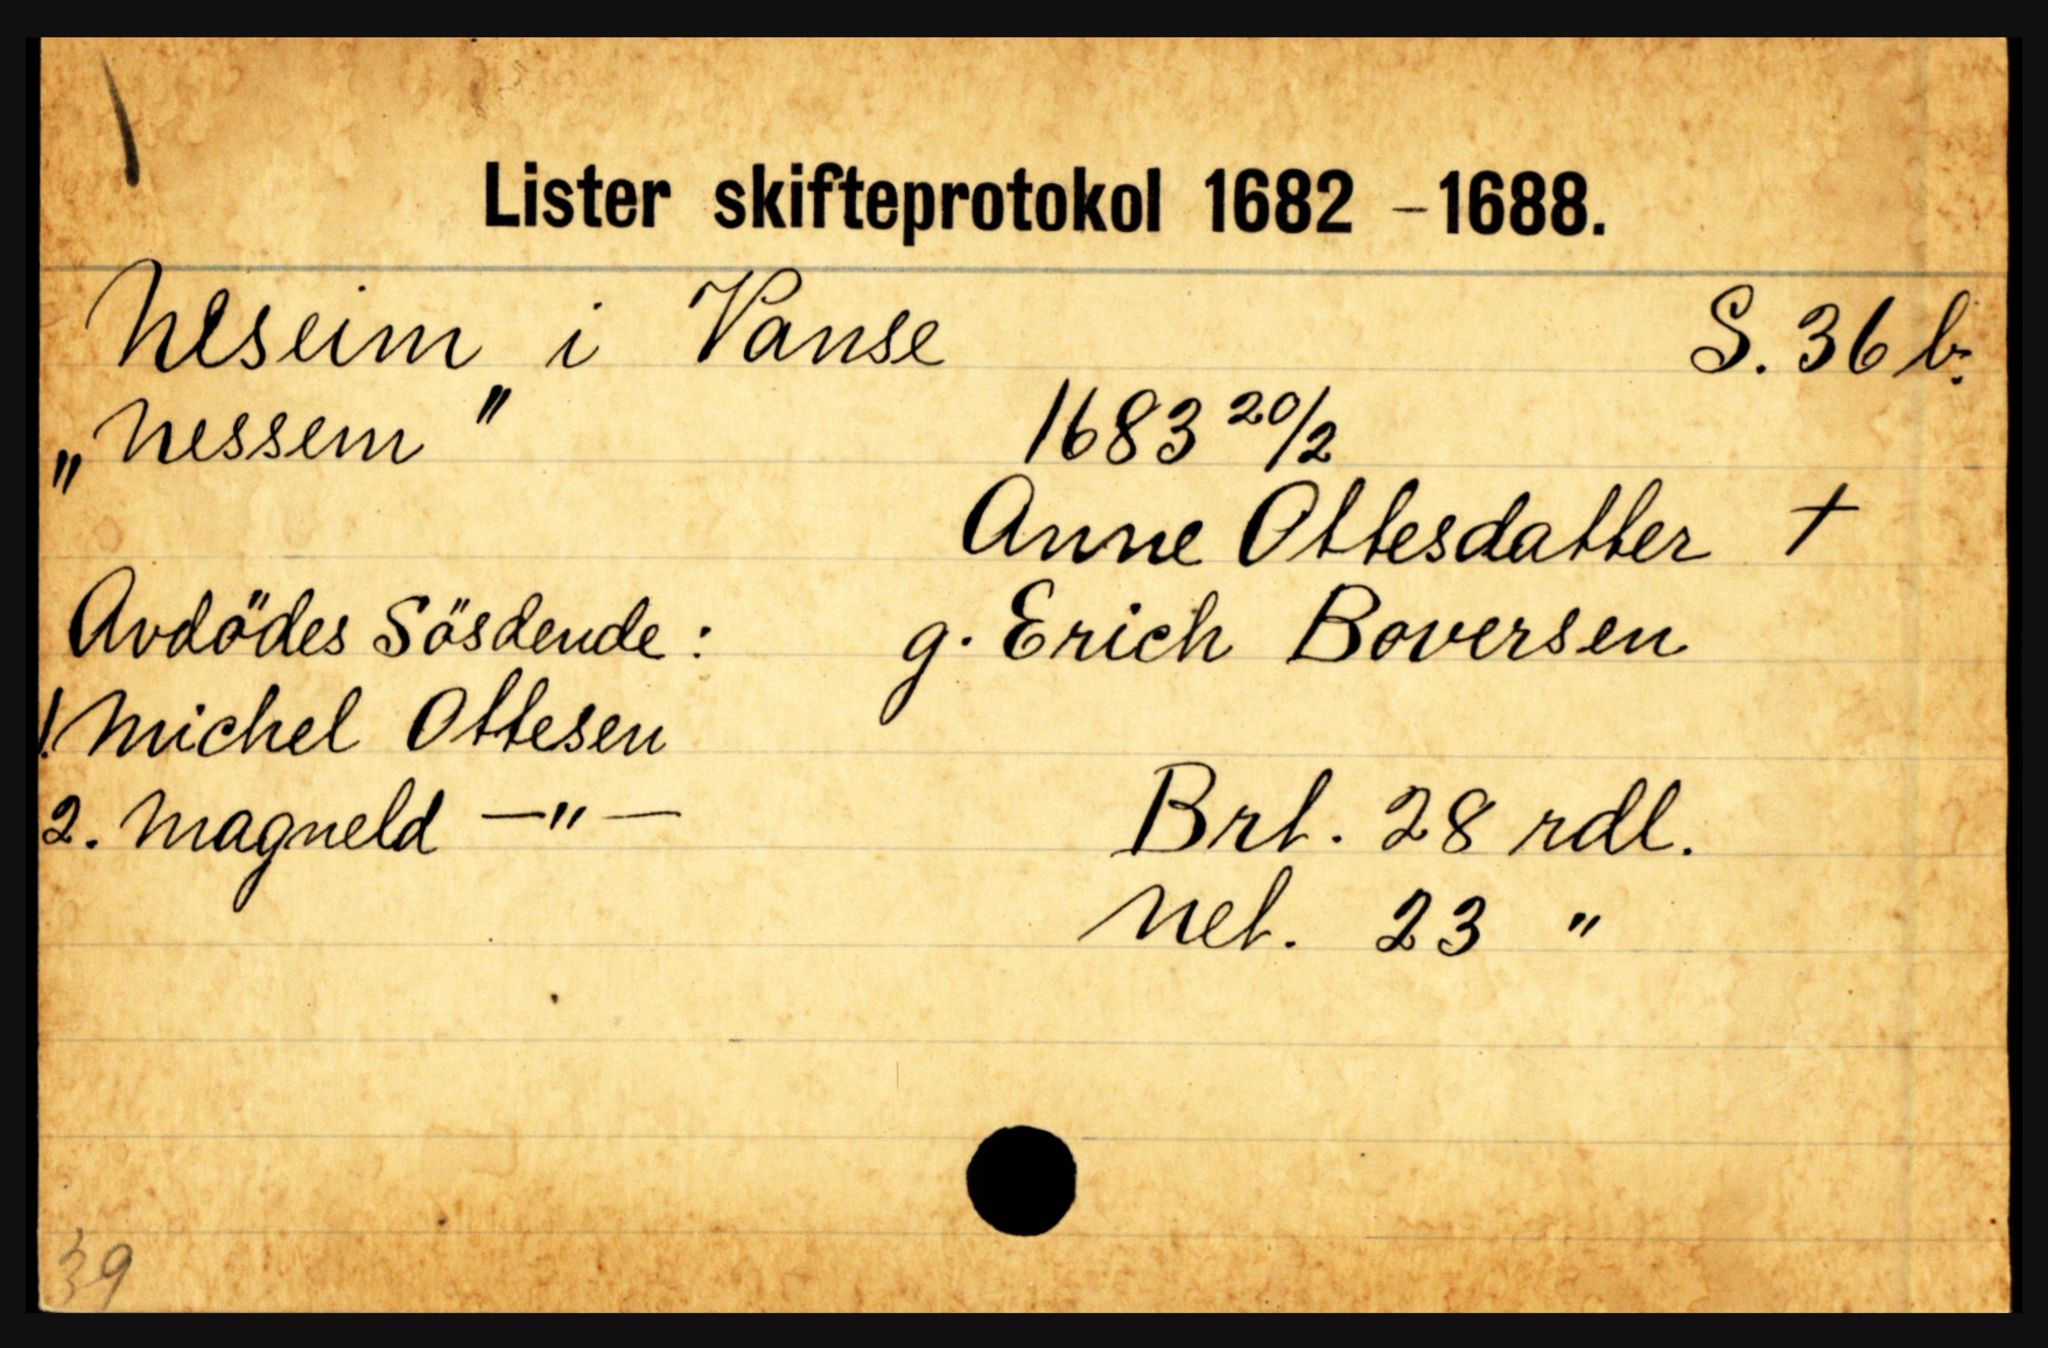 Lister skifteprotokol 1682 – 1688.
Neseim i Vanse S. 36 b.
„Nessem" 1683 20/2
Anne Ottesdatter †
Avdödes Sösdende: g. Erich Boversen
1. Michel Ottesen
2. Magneld —"— Brt. 28 rdl.
Net. 23 "
39